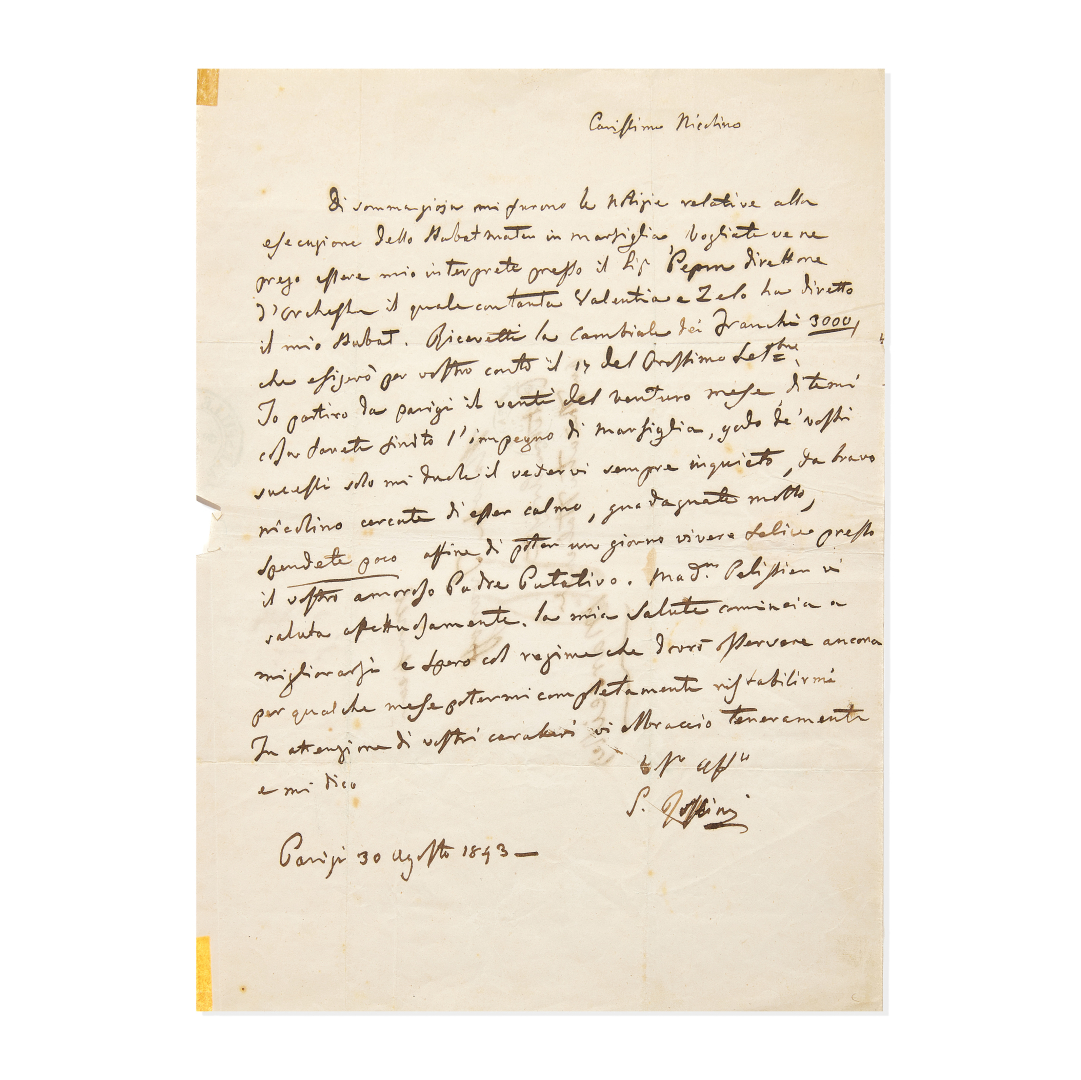 Carissimo Nicolino
Di somma gioja mi furono le notizie relative alla
esecuzione dello Stabat mater in Marsiglia, Vogliate ve ne
prego essere mio interprete presso il Sig direttore
d'orchestra il quale con tanta Valentia e Zelo ha diretto
il mio Stabat. Ricevetti la cambiale dei Franchi 3000,
che esigerò per vostro conto il 17 del prossimo Setbre
Io partiro da parigi il venti del venturo mese, ditemi
se avrete finito l'impegno di Marsiglia, godo de' vostri
successi solo mi duole il vedervi sempre inquieto, da bravo
nicolino cercate di esser calmo, guadagnate molto,
spendete poco affine di poter un giorno vivere felice presso
il vostro amoroso Padre Putativo. Madm Pelissier vi
saluta affettuosamente. la mia salute comincia a
migliorarsi e spero col regime che dovrò osservare ancora
per qualche mese potermi completamente ristabilirmi
In attenzione di vostri caratteri vi abbraccio teneramente
e mi dico
Vo affo
G. Rossini
Parigi 30 Agosto 1843 —